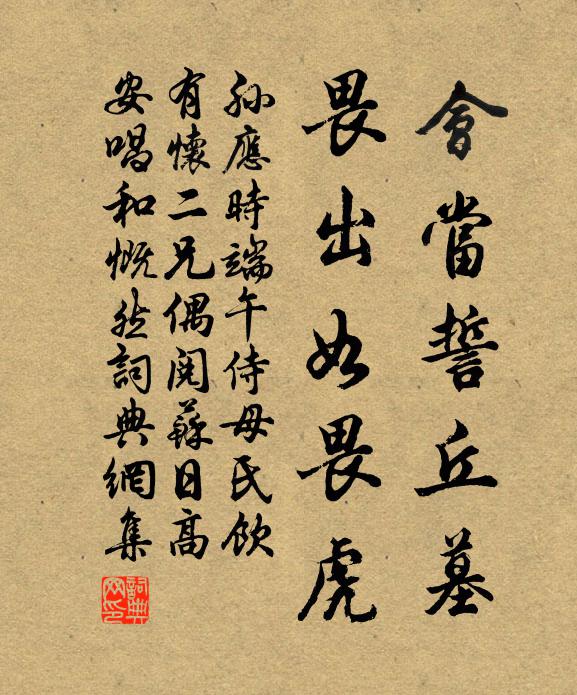 會當誓丘墓
畏出如畏虎
孫應時端午侍母氏飲
有懷二兄偶閱蘇日高
安唱和慨然詞典網集
詞典网印